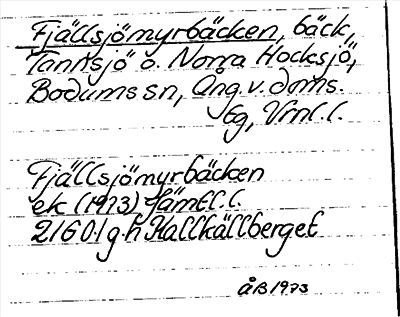 Fjällsjömyrbäcken, bäck,
Tannsjö o. Norra Hocksjö,
Bodums sn, Ång. v. doms.
tg, Vrnl. l.
Fjällsjömyrbäcken
ek (1973) Jämtl. l.
2160:1 g. h Kallkällberget
ÅB 1973